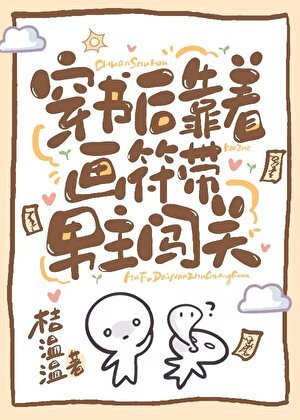 ChuanShuHou
穿书后靠着
KaoZhe
画符带
男主闯关
HuaFuDaiNanZhuChuangGuan
桔温温著
?